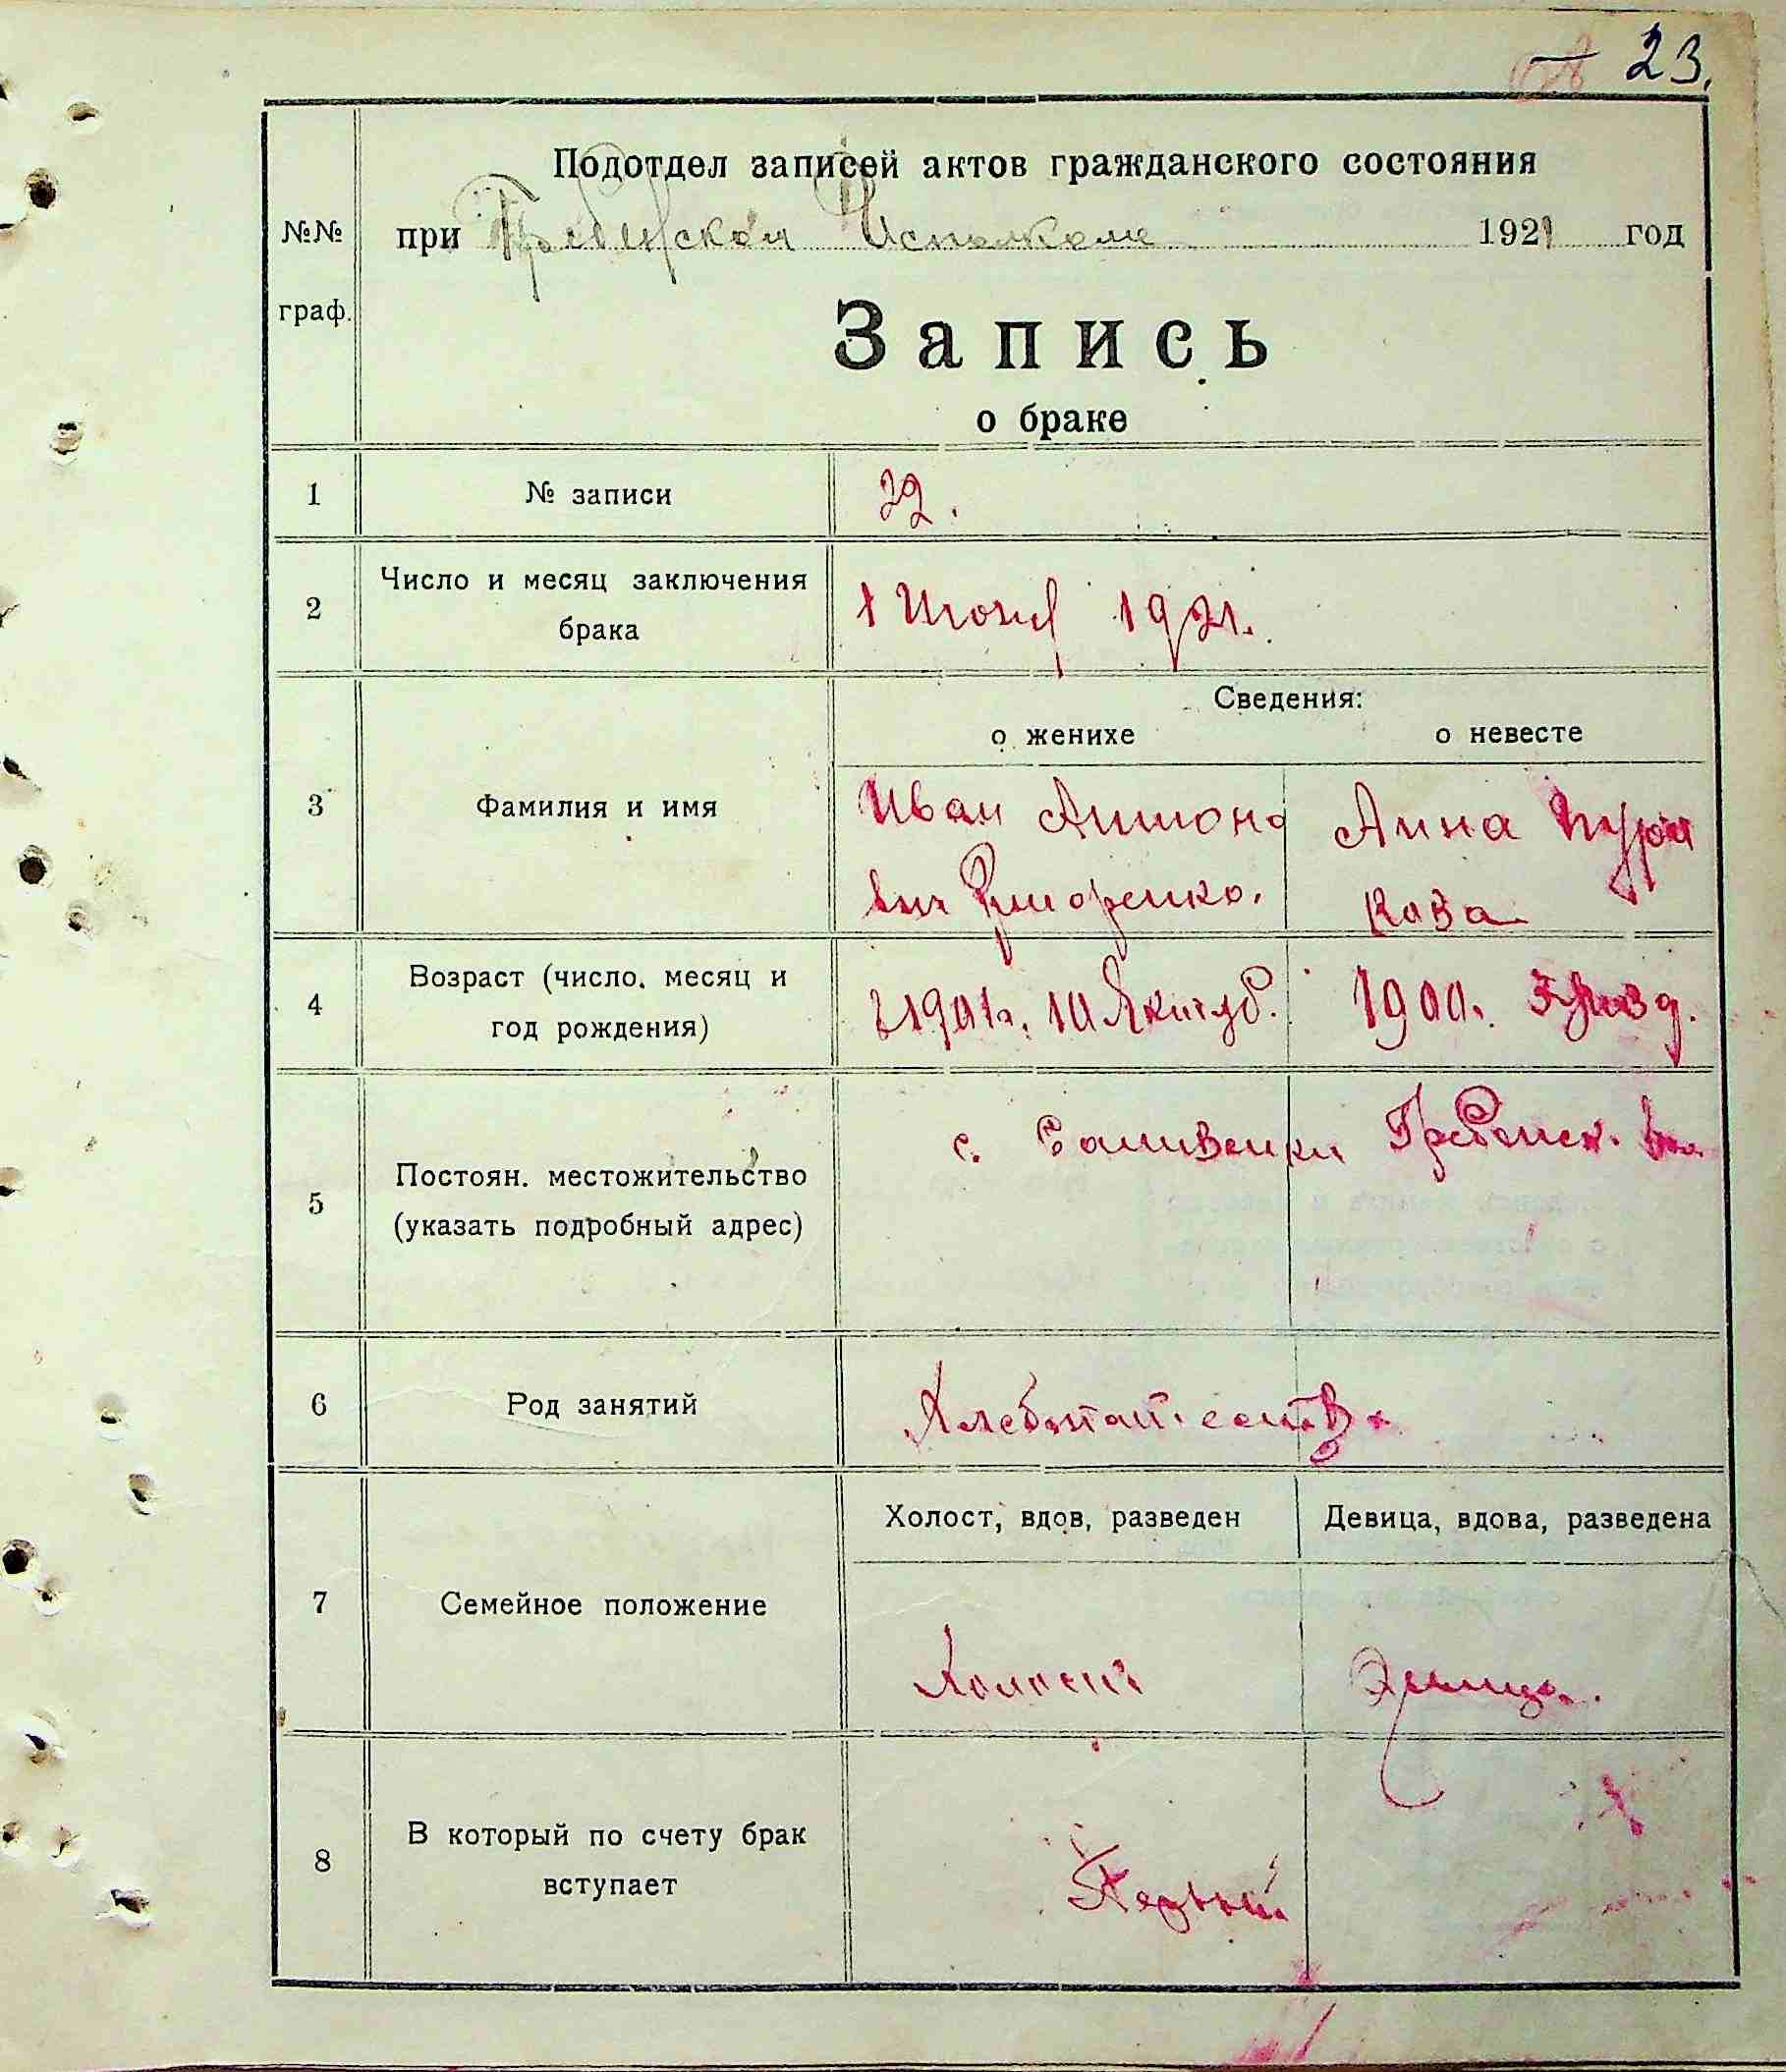 23.
Подотдел записей актов гражданского состояния
№№ при Гребенском Исполкоме 1921 год
граф.
Запись
о браке
1 № записи 22.
2 Число и месяц заключения
брака
1 Июня 1921.
Сведения:
о женихе о невесте
3 Фамилия и имя
Иван Антоно Анна
вич
кова
4 Возраст (число, месяц и
год рождения)
1901г. 10 1900.
5 Постоян. местожительство
(указать подробный адрес)
с. Саливенки Гребенск. вол.
6 Род занятий Хлебопашество
Холост, вдов, разведен Девица, вдова, разведена
7 Семейное положение
Холост Девица.
8 В который по счету брак
вступает
Первый